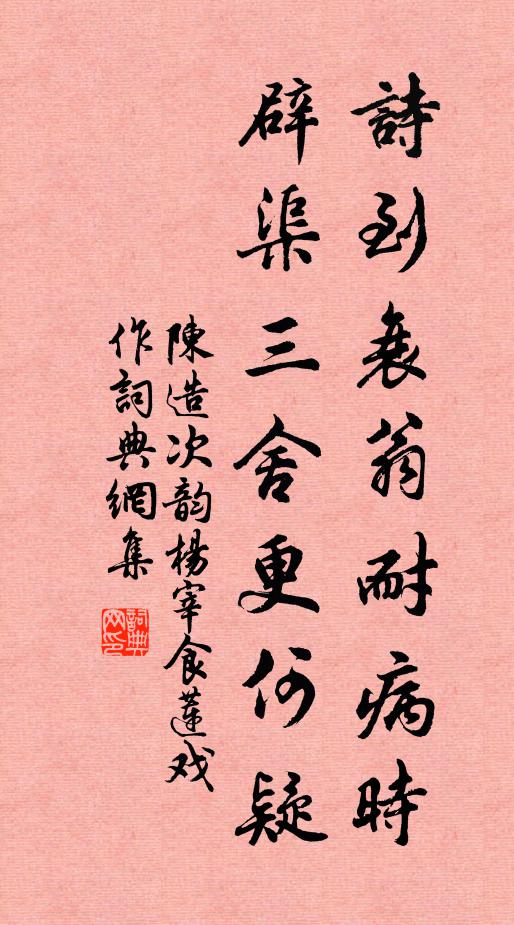 詩到衰翁耐病時
辟渠三舍更何疑
陳造次韵楊宰食蓮戏
作詞典網集
詞典网印